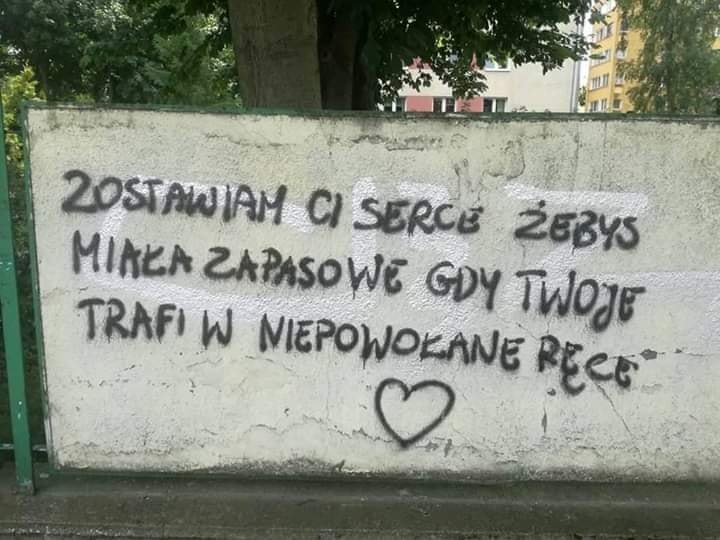 ZOSTAWIAM CI SERCE ŻEBYS
MIAŁA ZAPASOWE GDY TWOJE
TRAFI W NIEPOWOŁANE RĘCE